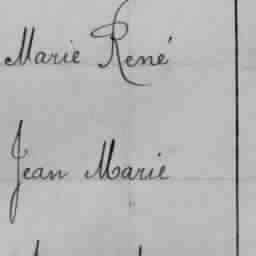 Marie René
Jean Marie